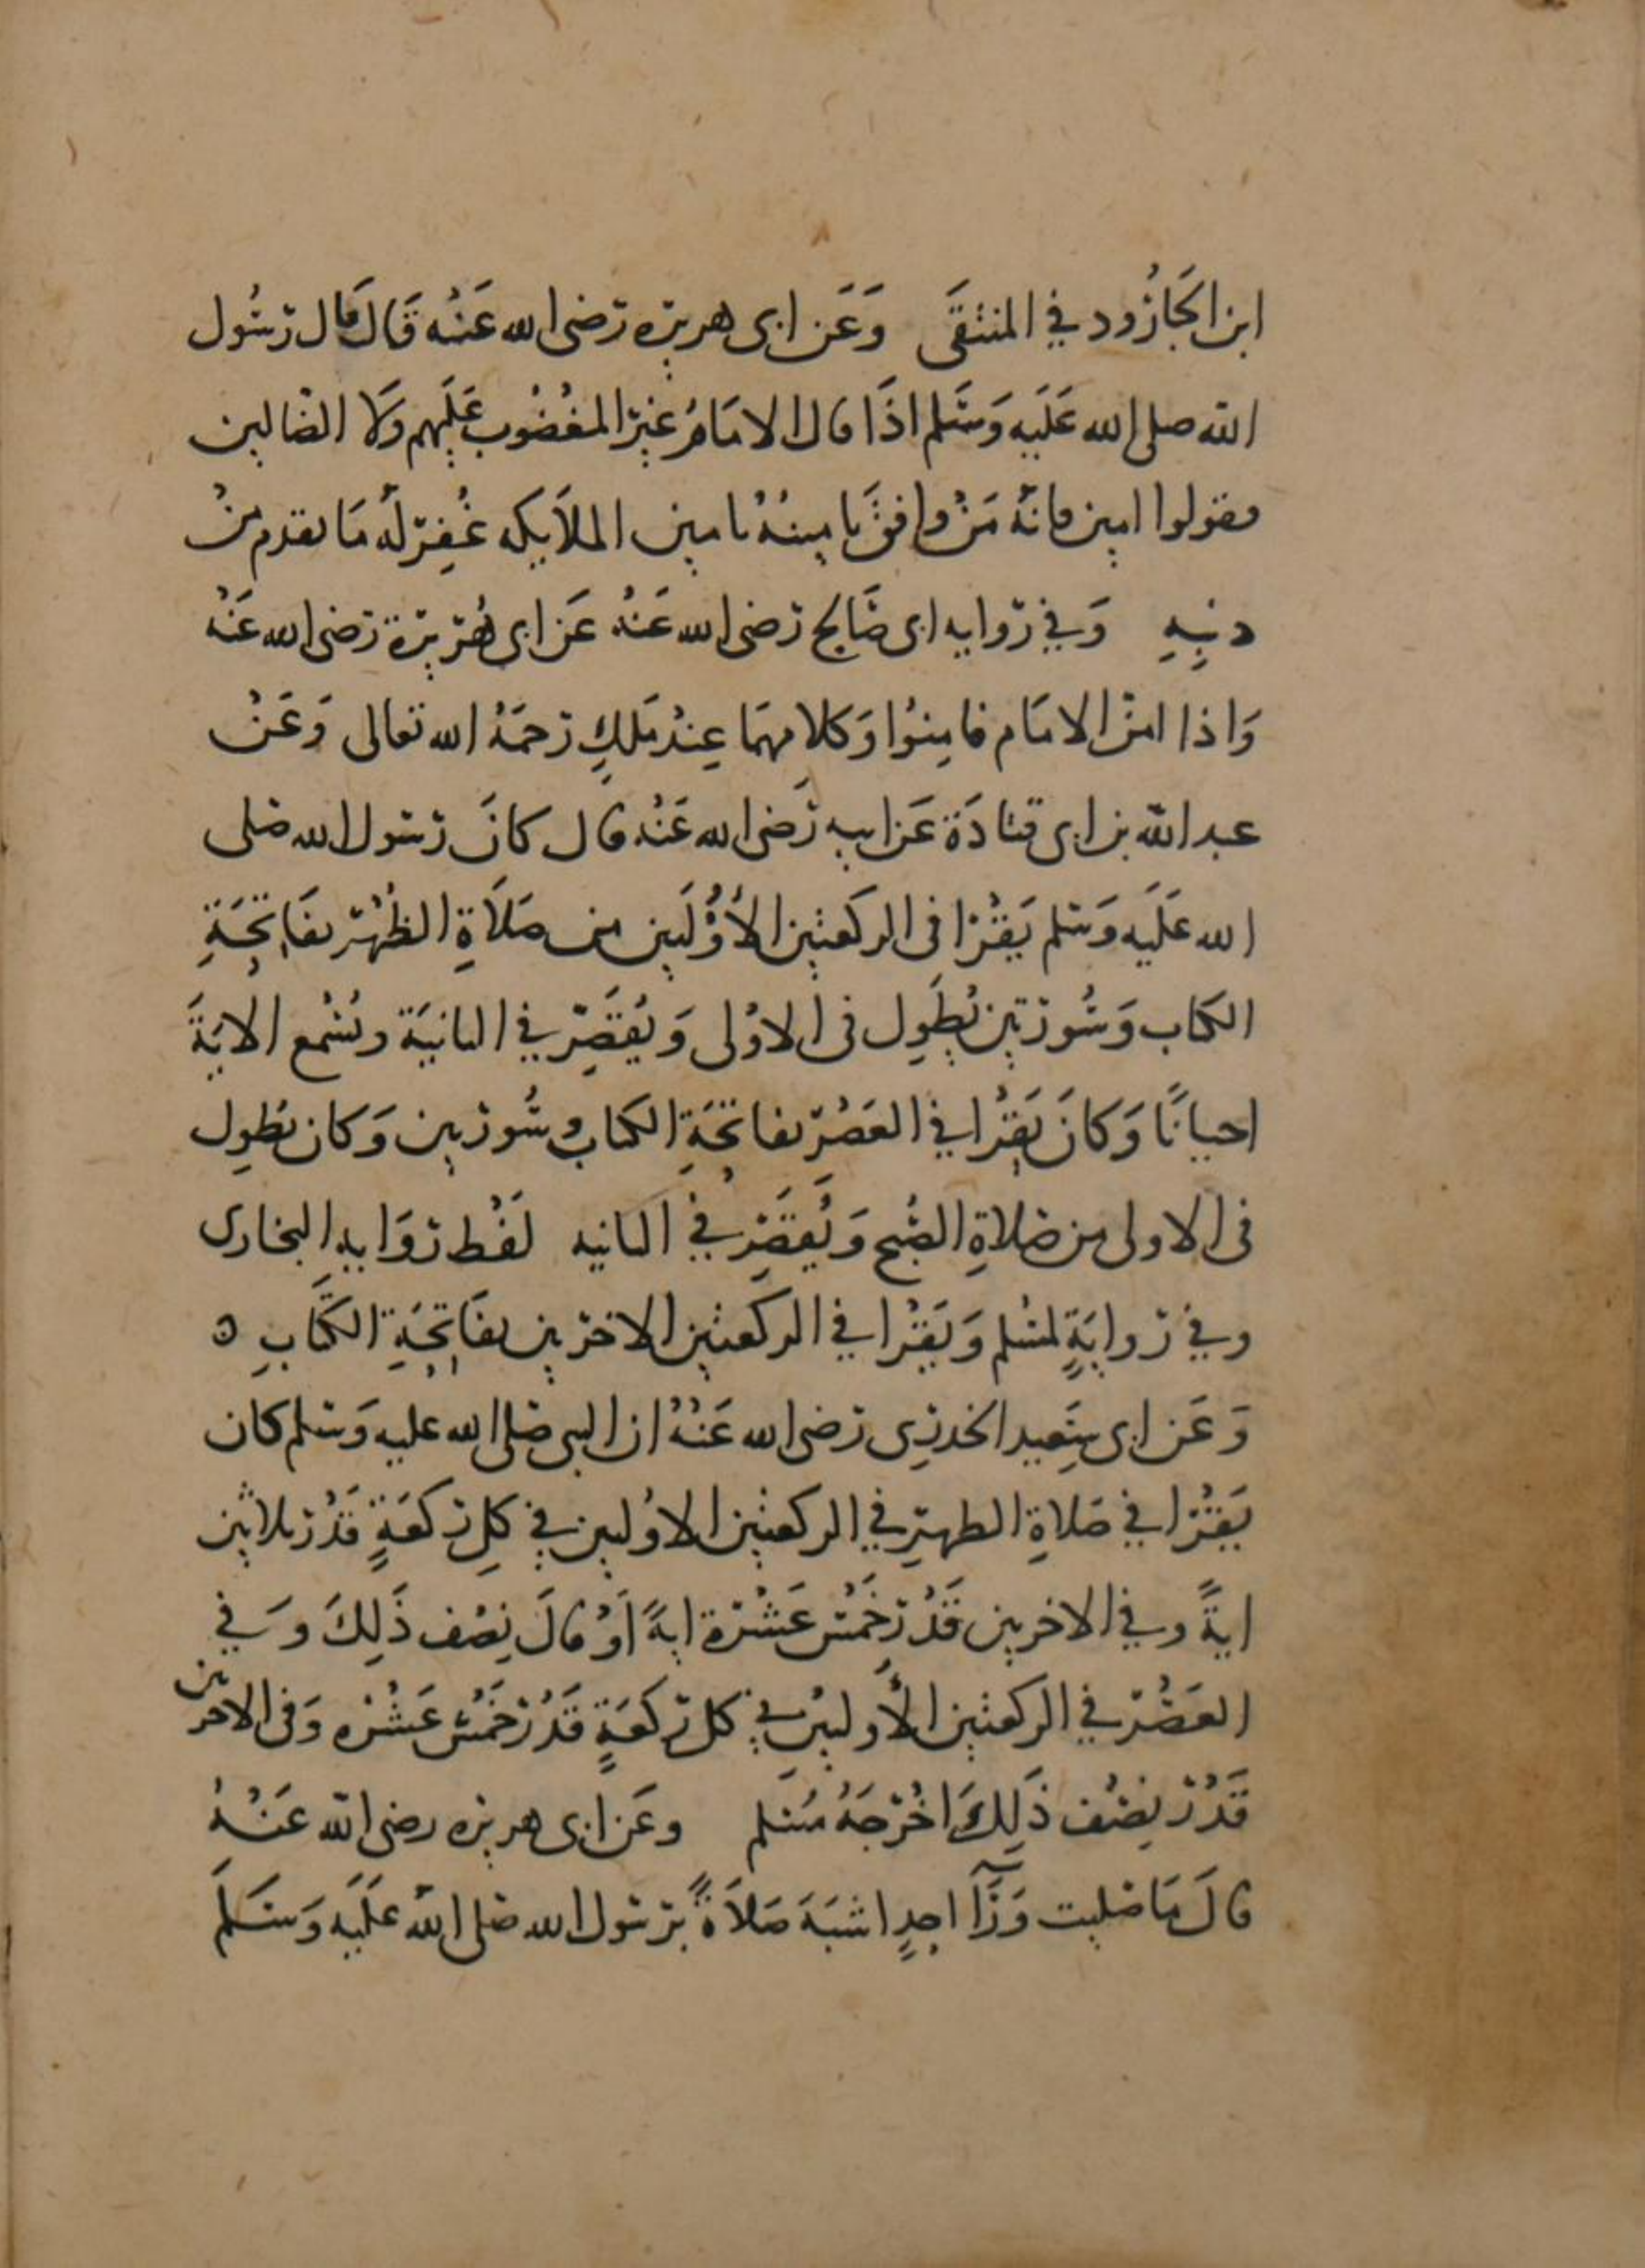 ابن الجَارُود في المنتقَى وَعَن ابى هريره رضى الله عَنْه قَالَ قَال رسُول
الله صلى الله عَلَيه وَسَلم اذَا قال الامَامُ غيرِ المغْضُوبِ عَلَيهِم وَلا الضالين
فقولوا امين فانَّهُ مَنْ وافقَ تامينُهُ تامين الملاَيكه غُفِرَ لَه مَا تقدم منْ
ذنبِهِ وَفي رواية ابى صَالح رضى الله عَنْهُ عَن ابى هُرَيرَة رضى الله عَنْهُ
وَاذا امنَ الامَام فامِنوُا وَكلامهمَا عِنْد مَلكٍ رَحمَهُ الله تعالى وَعَنْ
عبد الله بن ابى قتادَة عَن ابيه رَضى الله عَنْه قال كانَ رسول الله صلى
الله عَلَيه وَسَلم يَقْرَا فى الركعتين الأُوْلَيين من صَلاَةِ الظُهْر بفَاتحَةِ
الكتاب وَسُورَتين يُطَوِل فى الاوْلى وَيُقَصِر في الثانيَة ويُسْمع الايَةَ
احيانًا وَكانَ يَقْرَا في العَصْر بفاتحَةِ الكتاب وسُورتين وَكان يُطول
فى الاولى من صَلاةِ الصُبح وَيُقَصِر في الثانيه لَفْظ رِوَايه البخارى
وفي رِوايَةٍ لمسْلم وَيَقْرَا في الركعتين الاخرَيين بفَاتحَةِ الكتَابِ ه
وَعَن ابى سَعِيد الخدرِى رضى الله عَنْهُ ان النبى صَلى الله عليه وَسَلم كان
يَقْرَا في صَلاةِ الظهرِ في الركعتين الاوْليين في كلِ ركعَةٍ قَدْرَ ثلاثين
ايةً وفي الاخريين قَدْرَ خَمْسَ عَشْرَة ايةً اَوْ قالَ نِصْف ذَلِكَ وَفي
العَصْر في الركعتين الأوليَيْن في كل ركعَةٍ قَدْر خَمْسَ عَشْرَه وَفى الاخريين
قَدْرَ نِصْف ذَلِكَ اخْرَجَهُ مُسْلم وعَن ابى هريره رضى الله عَنْهُ
قالَ مَا صَليت وَرَآ احدٍ اشبَهَ صَلاَةً برَسُول الله صَلى الله عَلَيه وَسَلَّمَ